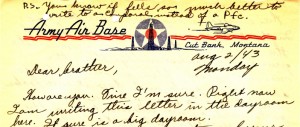 P.S. You know it fells so much better to
write to a Corporal instead of a Pfc.
Army Air Base
Cut Bank, Montana
Aug 2/43
Monday
Dear brother,
How are you. Fine I'm sure. Right now
I am writing this letter in the dayroom
here. It sure is a big dayroom.